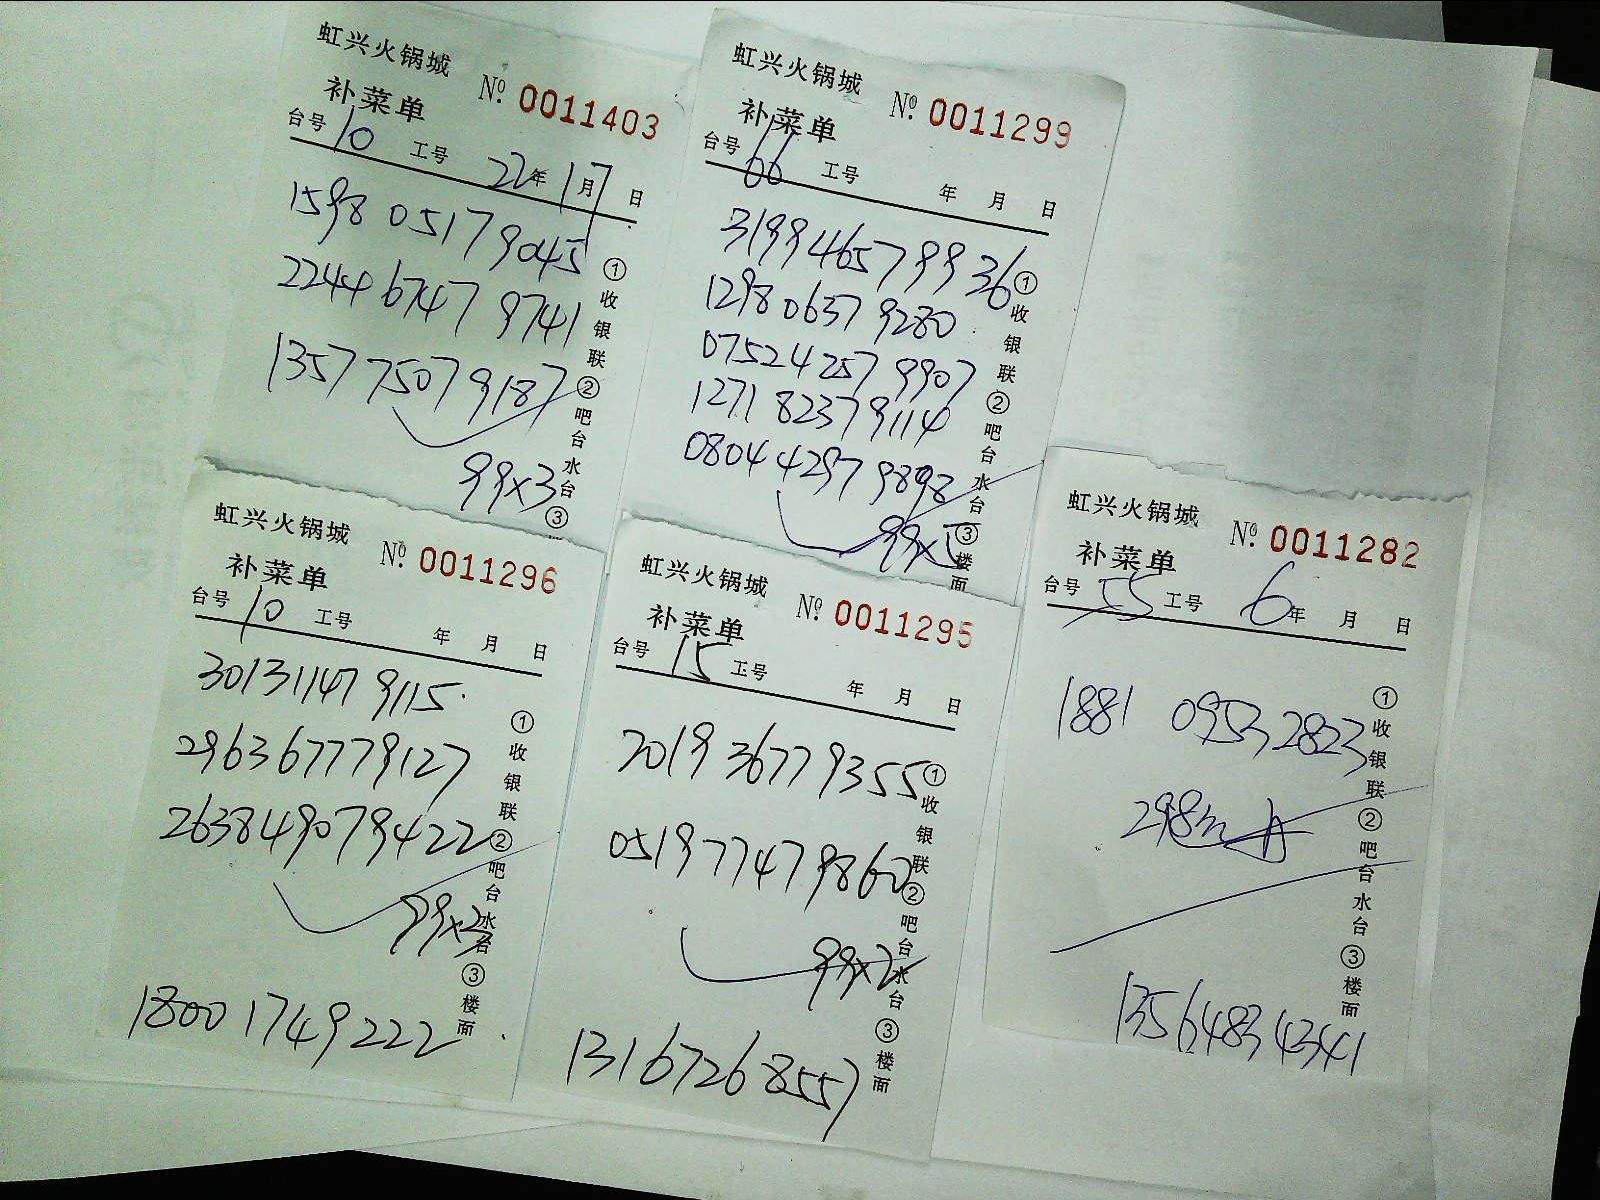 虹兴火锅城
补菜单 №. 0011403
台号 10 工号 22年 1月 7日
1598 0517 9045
2244 6747 9741
1357 7507 9187
99×3
①收银联②吧台水台③
虹兴火锅城
补菜单 №. 0011299
台号 66 工号 年 月 日
3199 4657 9936
1298 0637 9280
0752 4257 9907
1271 8237 9114
0804 4297 9898
99×5
①收银联②吧台水台③楼面
虹兴火锅城
补菜单 №. 0011296
台号 10 工号 年 月 日
3013 1147 9115
2963 6777 9127
2638 4907 9422
99×3
18001749222
①收银联②吧台水台③楼面
虹兴火锅城
补菜单 №. 0011295
台号 15 工号 年 月 日
7019 3677 9355
0519 7747 9860
99×2
13167268557
①收银联②吧台水台③楼面
虹兴火锅城
补菜单 №. 0011282
台号 55 工号 6年 月 日
1881 0953 2823
298
13564834341
①收银联②吧台水台③楼面